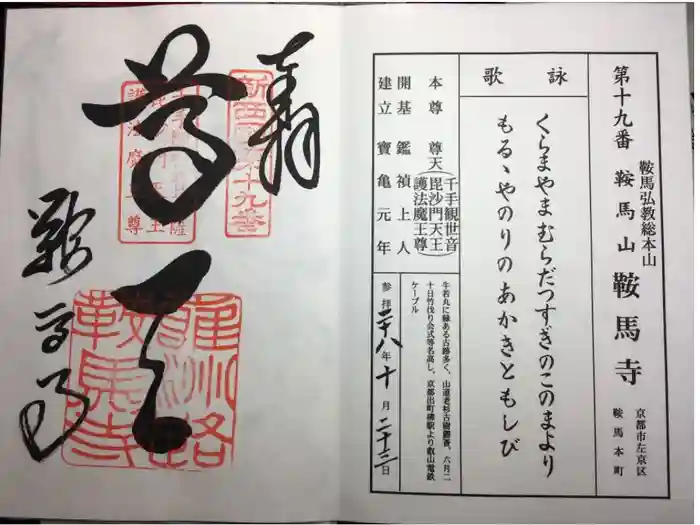 第十九番 鞍馬山 鞍馬寺
鞍馬弘教総本山
京都市左京区
鞍馬本町
詠歌
くらまやまむらだつすぎのこのまより
もるゝやのりのあかきともしび
本尊 尊天(千手観世音
毘沙門天王
護法魔王尊)
開基 鑑禎上人
建立 寶亀元年
牛若丸に縁ある古蹟多く、山道老杉古樹鬱蒼、六月二
十日竹伐り会式等名高し。京都出町柳駅より叡山電鉄
ケーブル
参拝二十八年十月二十三日
奉拝
新西国第十九番
尊天
鞍馬寺